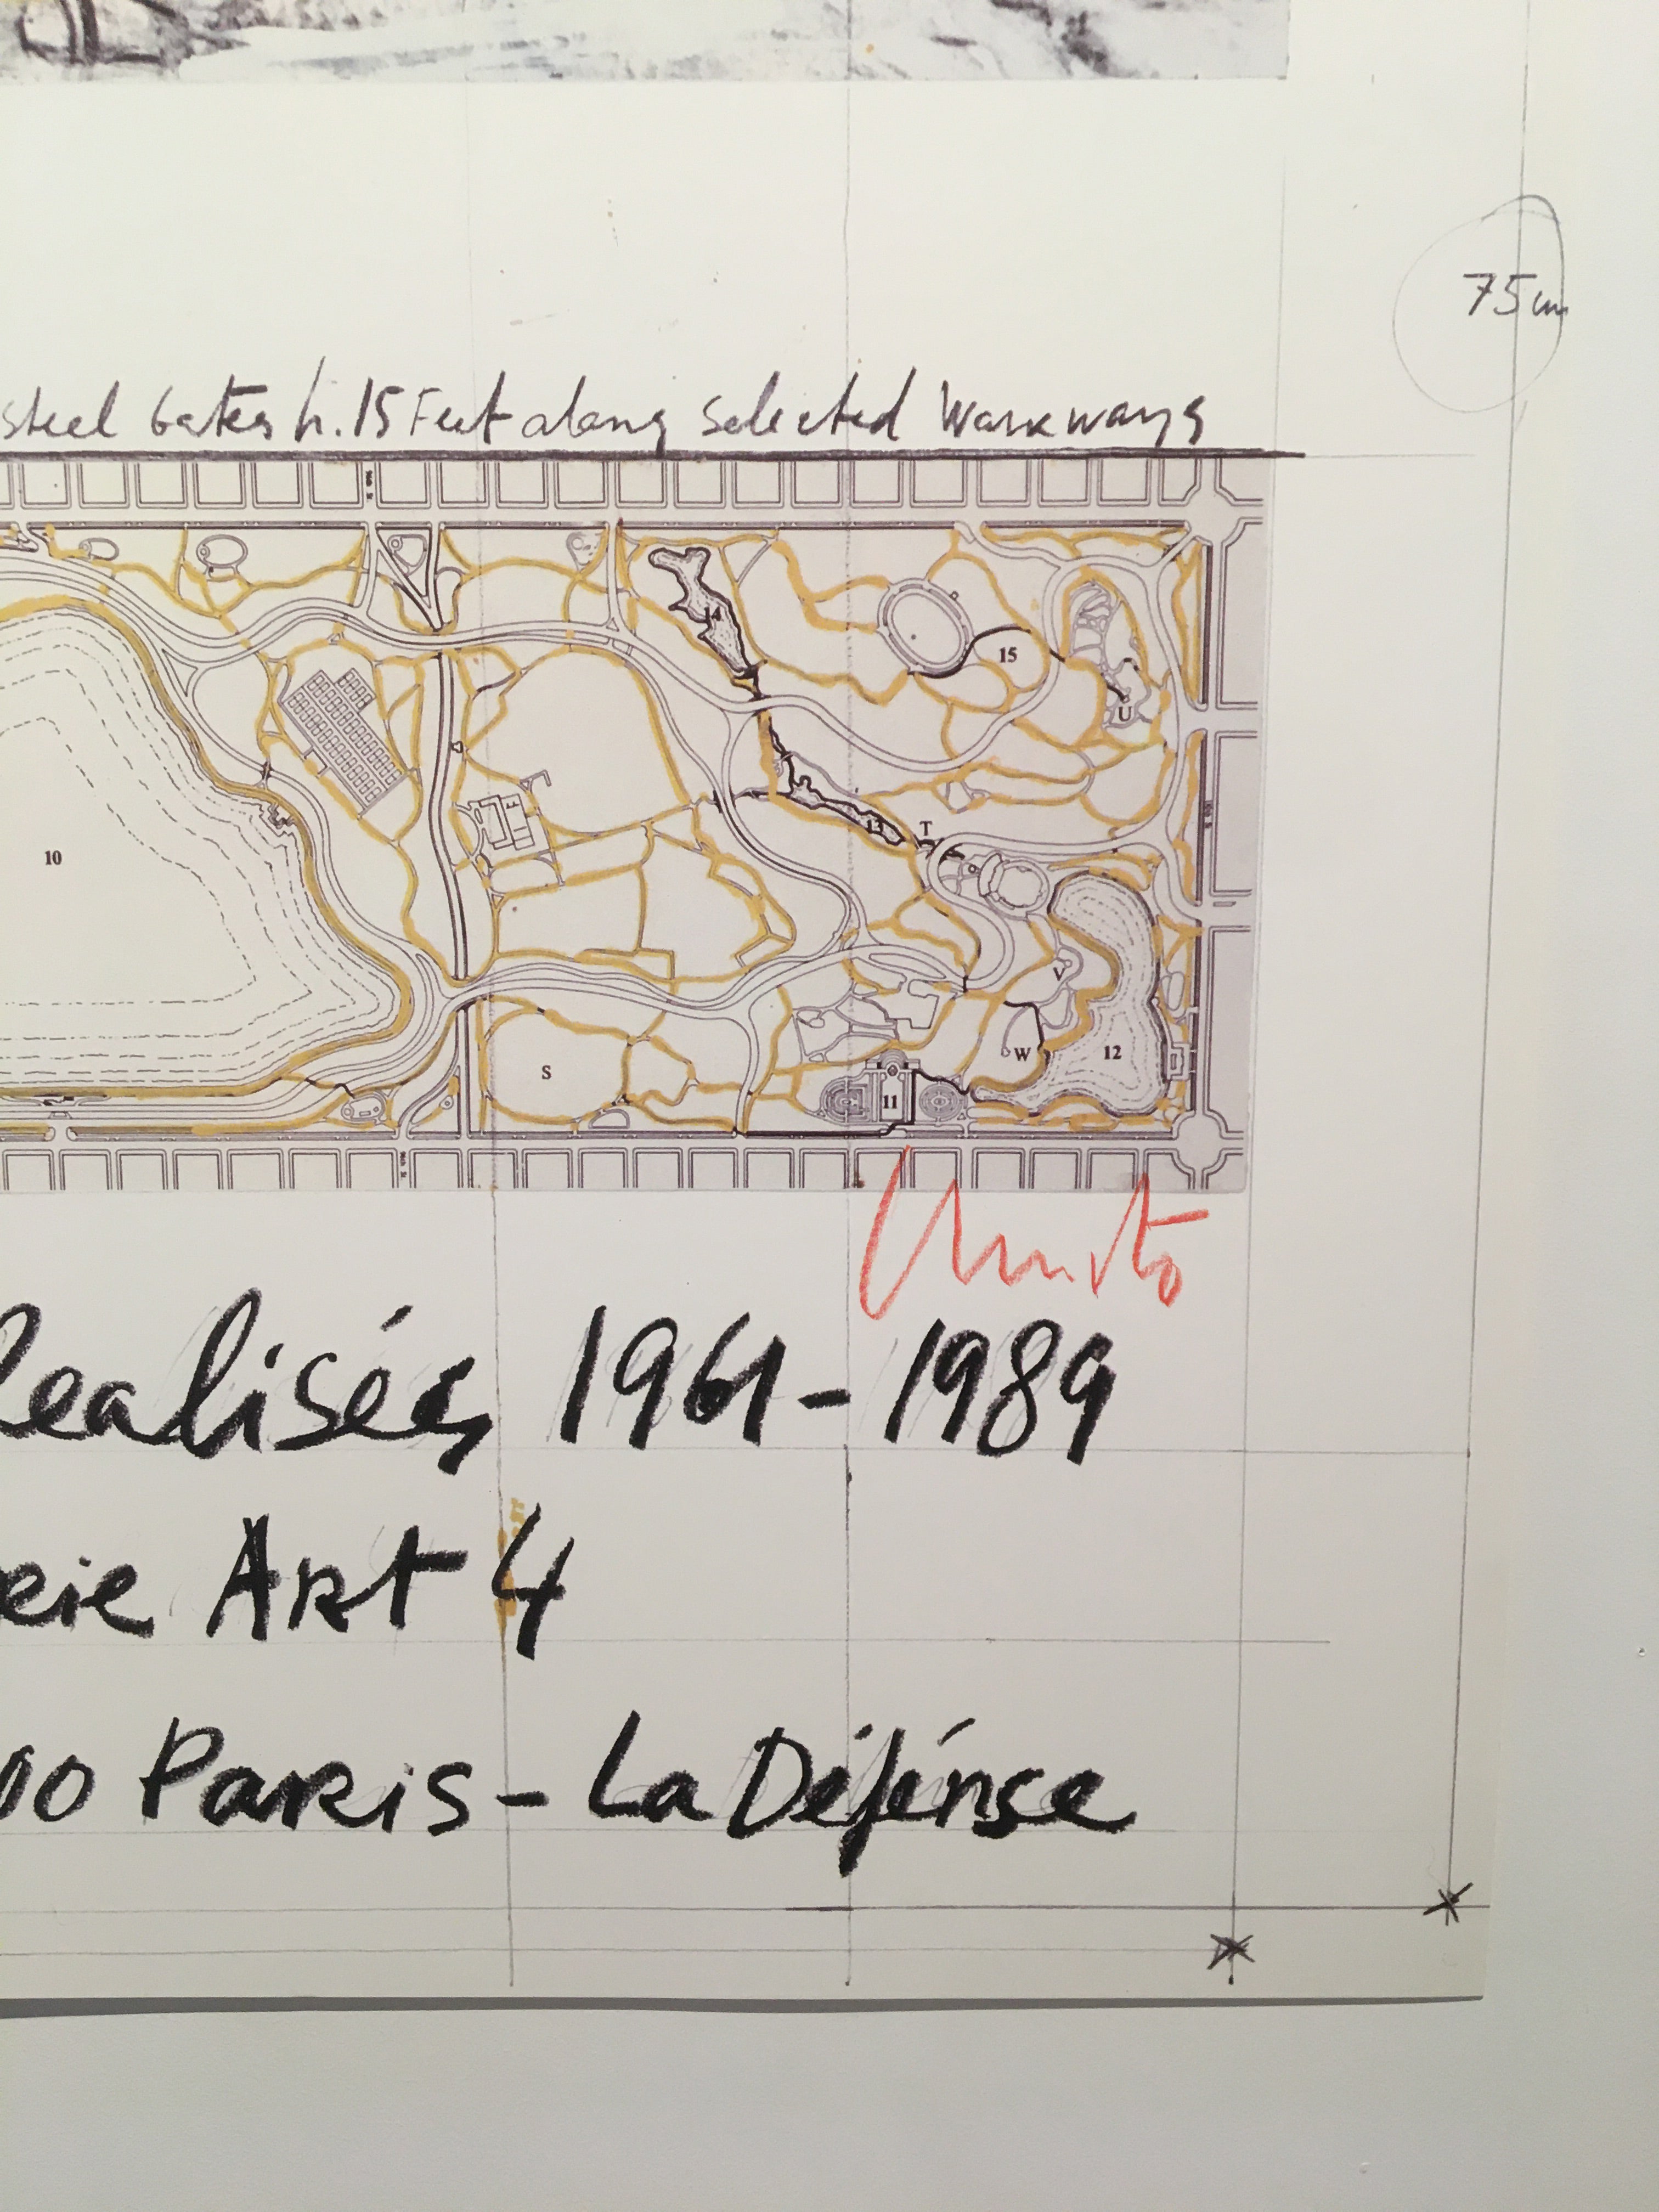 75cm
steel Gates h. 15 Feet along Selected Walkways
14
15
U
13
T
10
V
12
W
S
11
Christo
Réalisés 1961-1989
erie Art 4
00 Paris - La Défénse